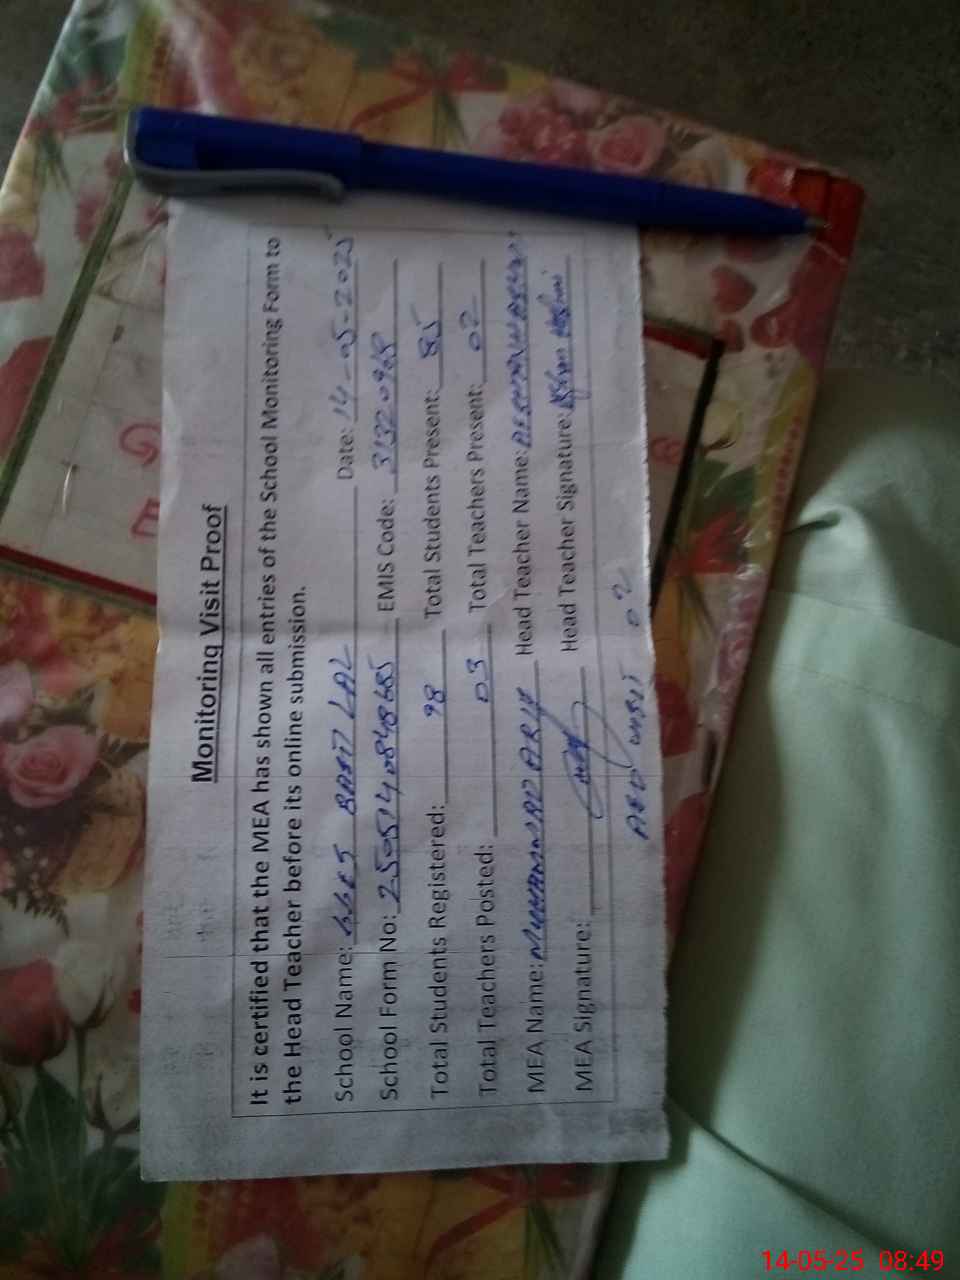 Monitoring Visit Proof
It is certified that the MEA has shown all entries of the School Monitoring Form to
the Head Teacher before its online submission.
School Name: GGES BASTI LAL Date: 14-05-2025
School Form No: 2505140848685 EMIS Code: 31320968
Total Students Registered: 98 Total Students Present: 85
Total Teachers Posted: 03 Total Teachers Present: 02
MEA Name: MUHAMMAD ARIF Head Teacher Name:
MEA Signature: Head Teacher Signature:
AEO VISIT 02
14-05-25 08:49